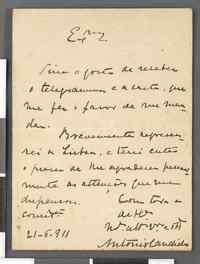 Exmo
Tive o gosto de receber
o telegramma e a carta, que
me fez o favor de me man-
dar.
Brevemente regressa-
rei a Lisboa, e terei então
o prazer de lhe agradecer pessoal-
mente as attenções que me
dispensou.
Com toda a
consid.
de V.
21-6-911
António Candido